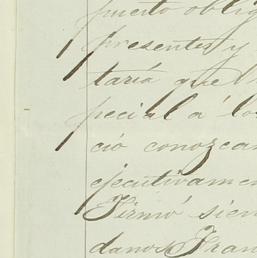 puesto oblig
presentes y
taria que
pecial a los
ció conozcan
ejecutivamen
Firmó sien
danos Fran